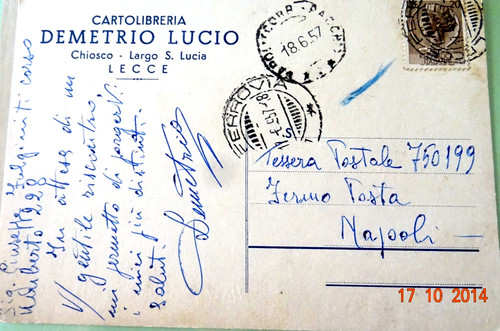 CARTOLIBRERIA
DEMETRIO LUCIO
Chiosco - Largo S. Lucia
LECCE
18.6.57
FERROVIA
Sig. Giuseppe corso
Umberto 228
In attesa di un
V/ gentile riscontro,
mi permetto di porgervi
i miei più distinti
saluti.
Demetrio
Tessera Postale 750199
Fermo Posta
Napoli
17 10 2014